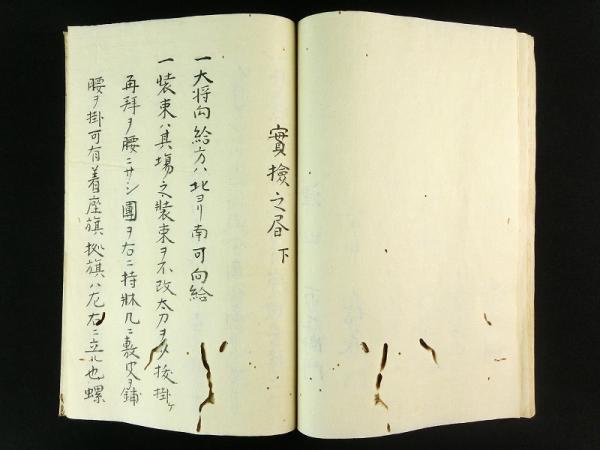 實撿之昼 下
一大将向給方ハ北ヨリ南可向給
一装束ハ其場之装束ヲ不改太刀ヲ 掛ケ
再拜ヲ腰ニサシ團ヲ右ニ持牀几ニ敷皮ヲ鋪
腰ヲ掛可有着座旗 旗ハ左右ニ立ル也螺